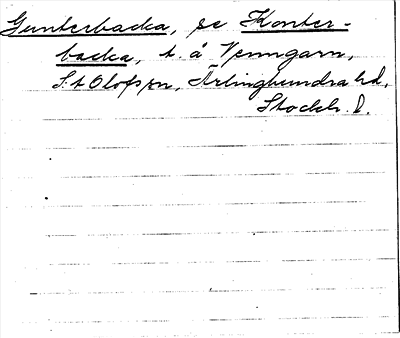 Gunterbacka, se Konter-
backa, t. å Venngarn,
S:t Olofs sn, Ärlinghundra hd,
Stockh. l.